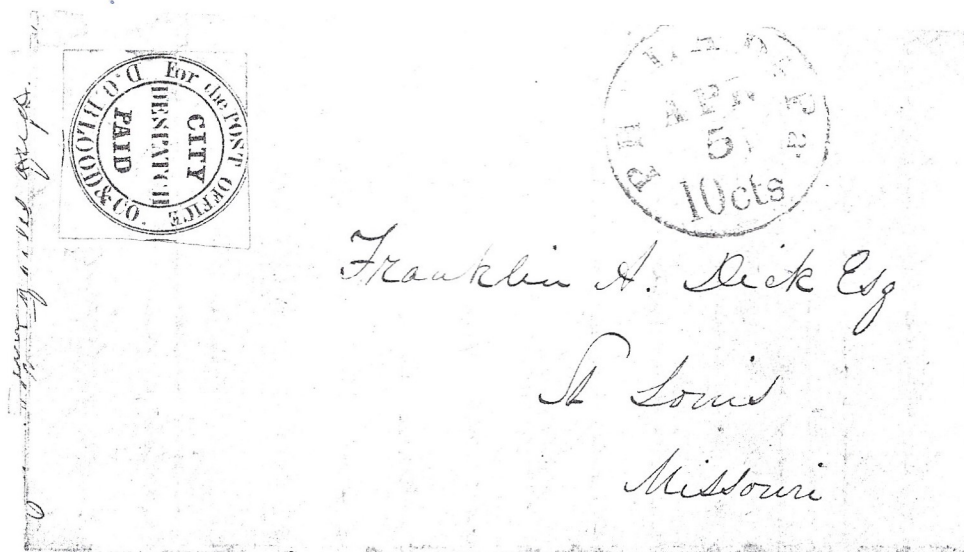 D.O.BLOOD&CO. For the POST OFFICE
CITY
DESPATCH
PAID
PHILADA Pa
APR
5
10cts
Franklin A. Dick Esq
St Louis
Missouri